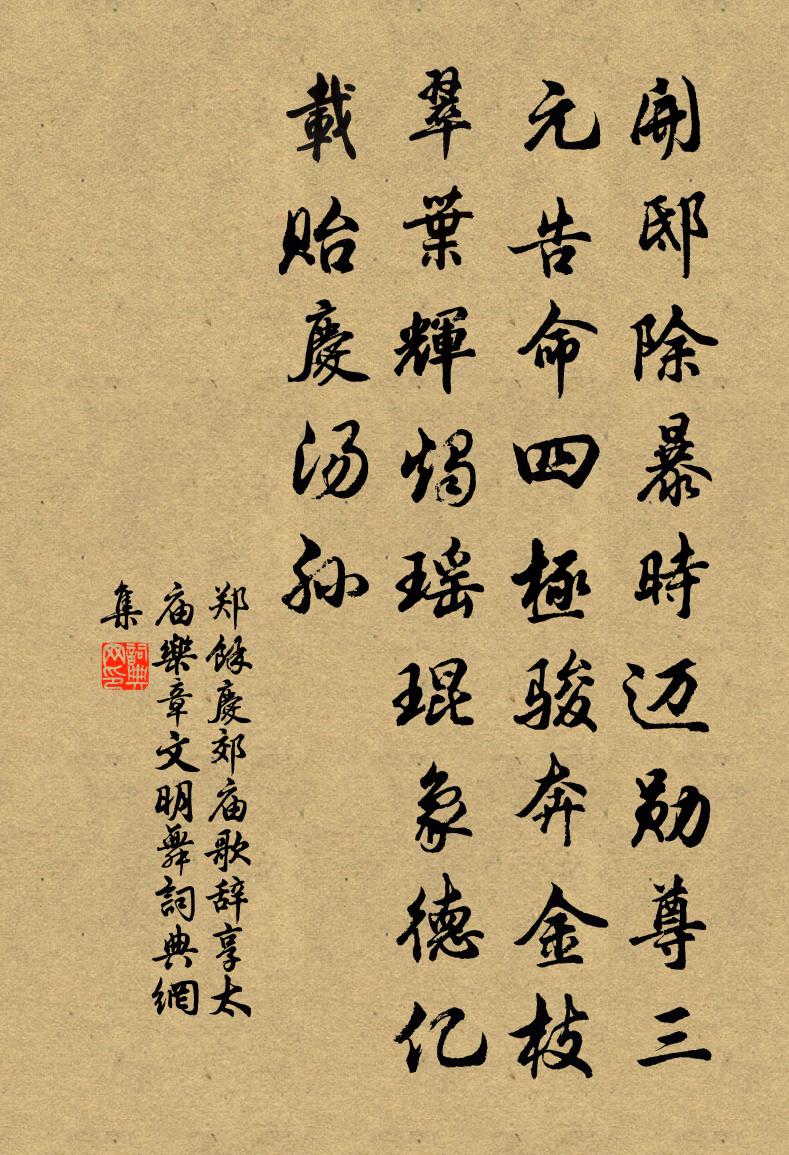 開邸除暴時迈勋尊三
元告命四極骏奔金枝
翠葉輝燭瑶琨象德亿
載貽慶汤孙
郑餘慶郊庙歌辞享太
庙樂章文明舞詞典網
集
詞典网印